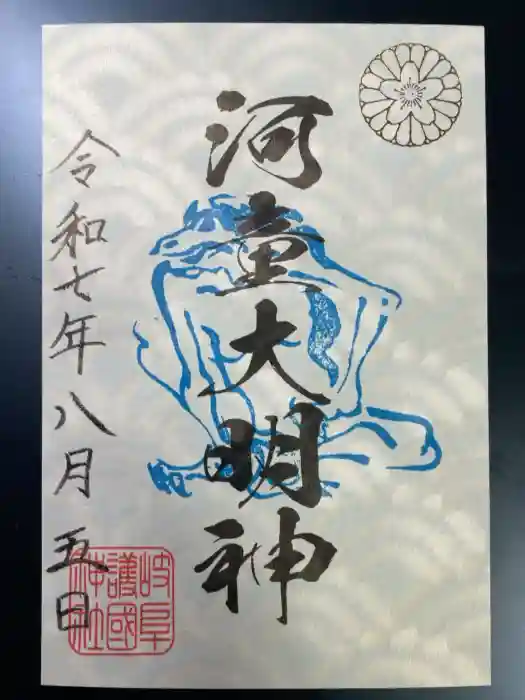 河童大明神
令和七年八月五日
岐阜
護國
神社